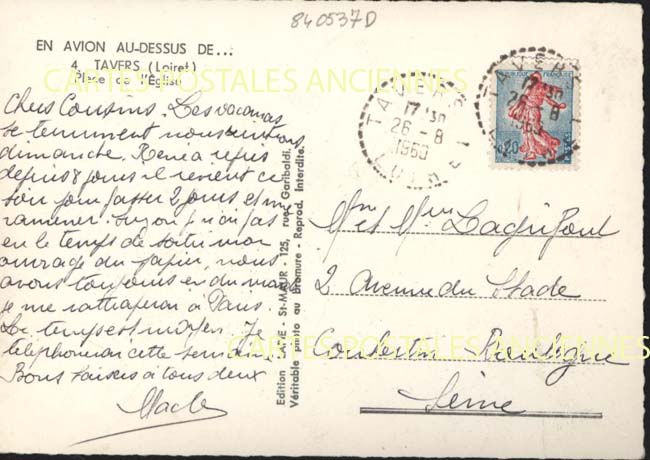 840537D
EN AVION AU-DESSUS DE...
4. TAVERS (Loiret)
Place de l'Église
CARTES POSTALES ANCIENNES
Chers Cousins. Les vacances
se terminent nous rentrons
dimanche. René a repris
depuis 8 jours il revient ce
soir pour passer 2 jours et me
ramener. je n'ai pas
en le temps de sortir mon
ouvrage du papier, nous
avons toujours eu du monde
je me rattraperai à Paris.
Le temps est moyen. Je
téléphonerai cette semaine
Bons baisers à tous deux
Edition LAPIE - St-MAUR - 125, rue Garibaldi.
Véritable photo au Bromure - Reprod. Interdite.
TAVERS
17 H 30
26 - 8
1960
LOIRET
REPUBLIQUE FRANÇAISE
0,20
TAVERS
17 H 30
26 - 8
1960
Mme et Mr
2 Avenue du Stade
Coubertin
Seine
CARTES POSTALES ANCIENNES